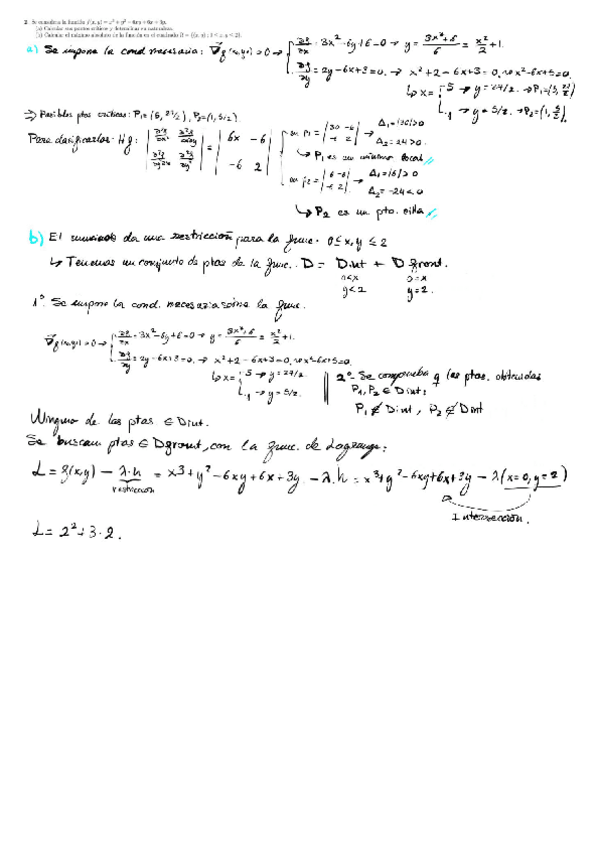 2. Se considera la función f(x, y) = x³ + y² − 6xy + 6x + 3y.
(a) Calcular sus puntos críticos y determinar su naturaleza.
(b) Calcular el máximo absoluto de la función en el cuadrado D = {(x, y) : 0 ≤ x, y ≤ 2}.
a) Se impone la cond necesaria: ∇f(x0,y0) = 0 → { ∂f/∂x = 3x² - 6y + 6 = 0 → y = (3x² + 6)/6 = x²/2 + 1.
∂f/∂y = 2y - 6x + 3 = 0. → x² + 2 - 6x + 3 = 0. → x² - 6x + 5 = 0.
↳ x = { 5 → y = 27/2. → P1 = (5, 27/2)
1 → y = 3/2. → P2 = (1, 3/2).
⇒ Posibles ptos críticos: P1 = (5, 27/2), P2 = (1, 3/2).
Para clasificarlos: Hf: | ∂²f/∂x² ∂²f/∂x∂y ; ∂²f/∂y∂x ∂²f/∂y² | = | 6x -6 ; -6 2 |
en P1 = | 30 -6 ; -6 2 | → Δ1 = |30| > 0
Δ2 = 24 > 0.
↳ P1 es un mínimo local
en P2 = | 6 -6 ; -6 2 | → Δ1 = |6| > 0
Δ2 = -24 < 0
↳ P2 es un pto. silla
b) El enunciado da una restricción para la func. 0 ≤ x, y ≤ 2
↳ Tenemos un conjunto de ptos de la func. D = Dint + Dfront.
0 < x 0 = x
y < 2 y = 2.
1º. Se impone la cond. necesaria sobre la func.
∇f(x0,y0) = 0 → { ∂f/∂x = 3x² - 6y + 6 = 0 → y = (3x² + 6)/6 = x²/2 + 1.
∂f/∂y = 2y - 6x + 3 = 0. → x² + 2 - 6x + 3 = 0. → x² - 6x + 5 = 0.
↳ x = { 5 → y = 27/2.
1 → y = 3/2.
2º- Se comprueba q los ptos. obtenidos
P1, P2 ∈ Dint:
P1 ∉ Dint, P2 ∉ Dint
Ninguno de los ptos ∈ Dint.
Se buscan ptos ∈ Dfront, con la func. de Lagrange:
L = f(x,y) - λ·h = x3 + y² - 6xy + 6x + 3y - λ.h = x³ + y² - 6xy + 6x + 3y - λ(x=0, y=2)
restricción
Intersección.
L = 2² + 3·2.